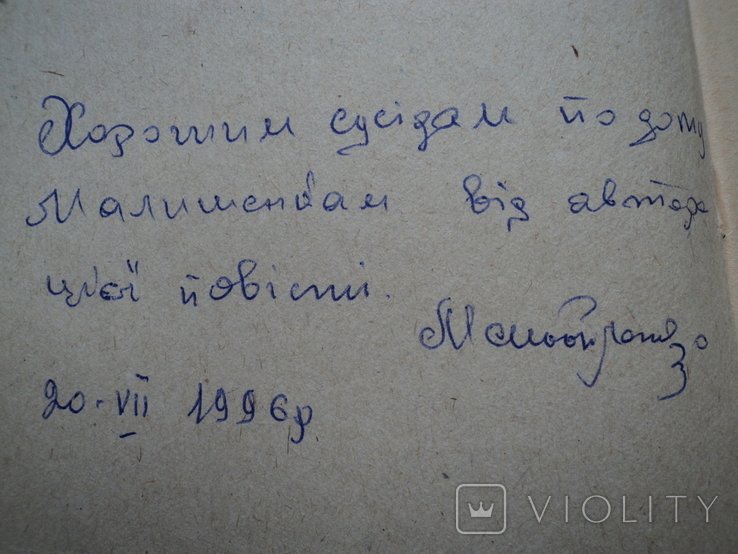 Хорошим сусідам по дому
Малишенкам від автора
цієї повісті.
20.VII 1996р
VIOLITY